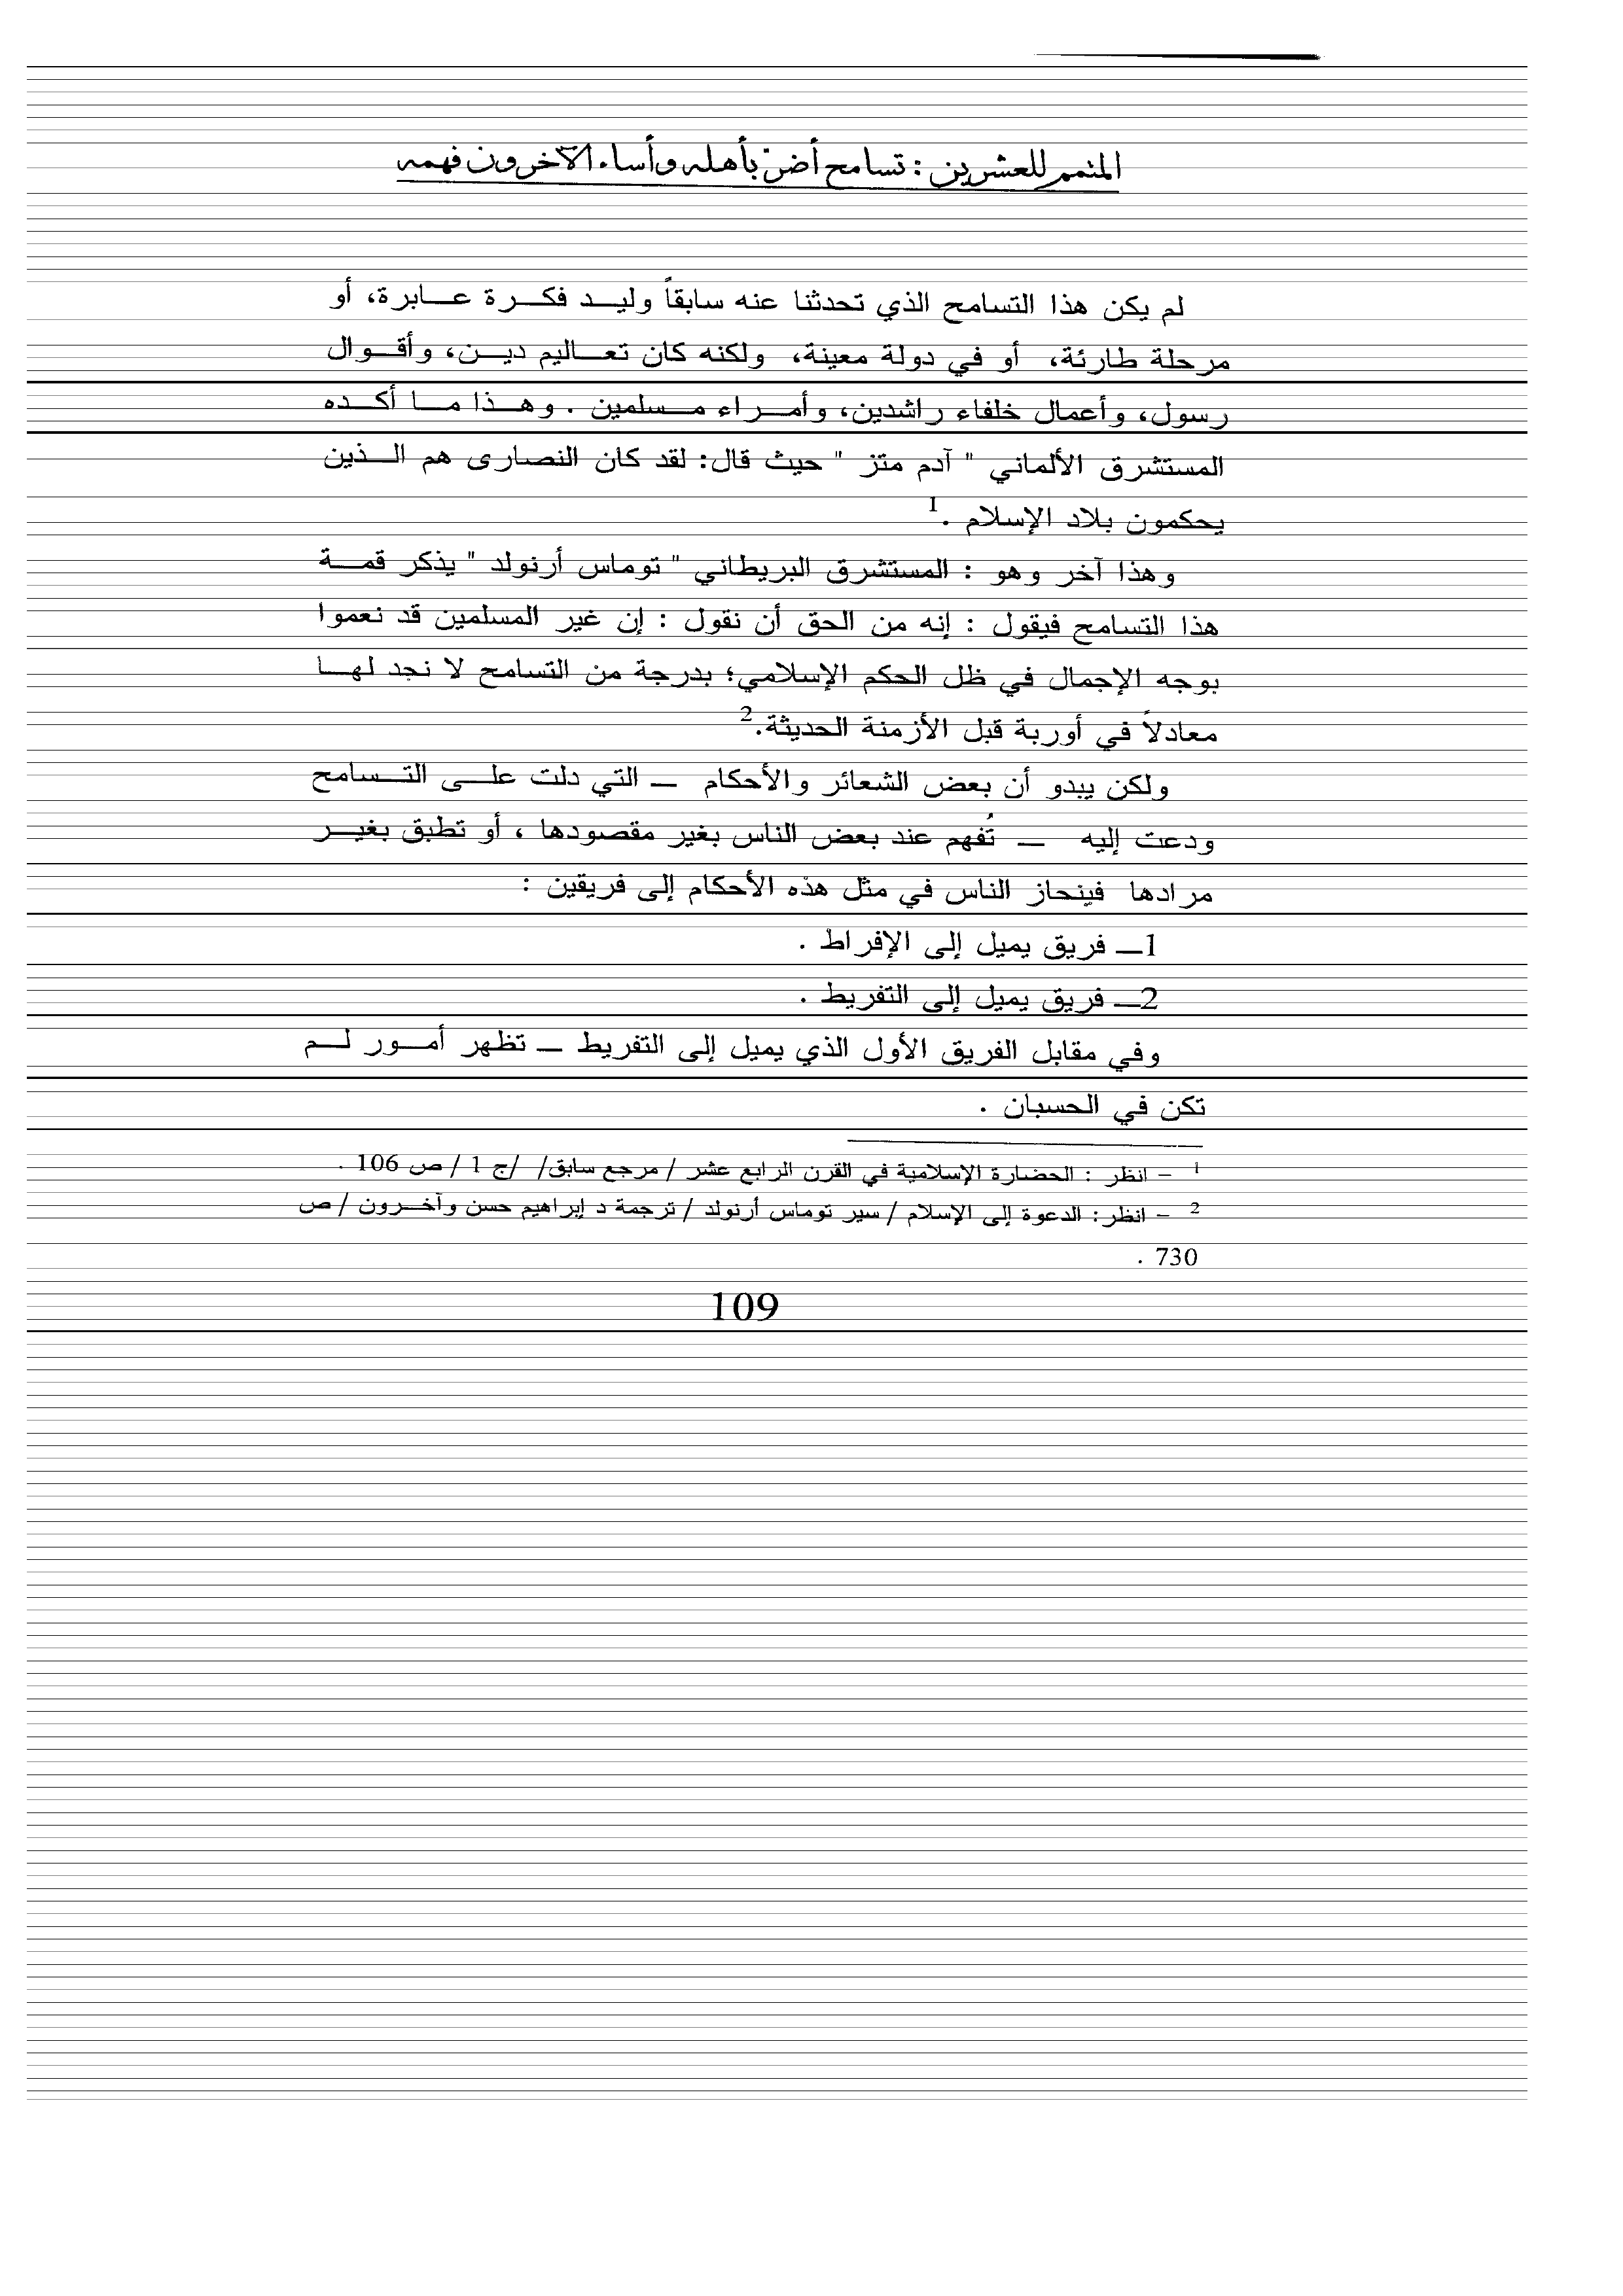 المتمم للعشرين : تسامح أضرّ بأهله وأساء الآخرون فهمه
لم يكن هذا التسامح الذي تحدثنا عنه سابقاً وليد فكرة عابرة، أو
مرحلة طارئة، أو في دولة معينة، ولكنه كان تعاليم دين، وأقوال
رسول، وأعمال خلفاء راشدين، وأمراء مسلمين . وهذا ما أكده
المستشرق الألماني " آدم متز " حيث قال: لقد كان النصارى هم الذين
يحكمون بلاد الإسلام .1
وهذا آخر وهو : المستشرق البريطاني " توماس أرنولد " يذكر قمة
هذا التسامح فيقول : إنه من الحق أن نقول : إن غير المسلمين قد نعموا
بوجه الإجمال في ظل الحكم الإسلامي؛ بدرجة من التسامح لا نجد لها
معادلاً في أوربة قبل الأزمنة الحديثة.2
ولكن يبدو أن بعض الشعائر والأحكام – التي دلت على التسامح
ودعت إليه – تُفهم عند بعض الناس بغير مقصودها ، أو تطبق بغير
مرادها فينحاز الناس في مثل هذه الأحكام إلى فريقين :
1– فريق يميل إلى الإفراط .
2– فريق يميل إلى التفريط .
وفي مقابل الفريق الأول الذي يميل إلى التفريط – تظهر أمور لم
تكن في الحسبان .
1 – انظر : الحضارة الإسلامية في القرن الرابع عشر / مرجع سابق/ /ج 1 / ص 106 .
2 – انظر: الدعوة إلى الإسلام / سير توماس أرنولد / ترجمة د إبراهيم حسن وآخرون / ص
730 .
109